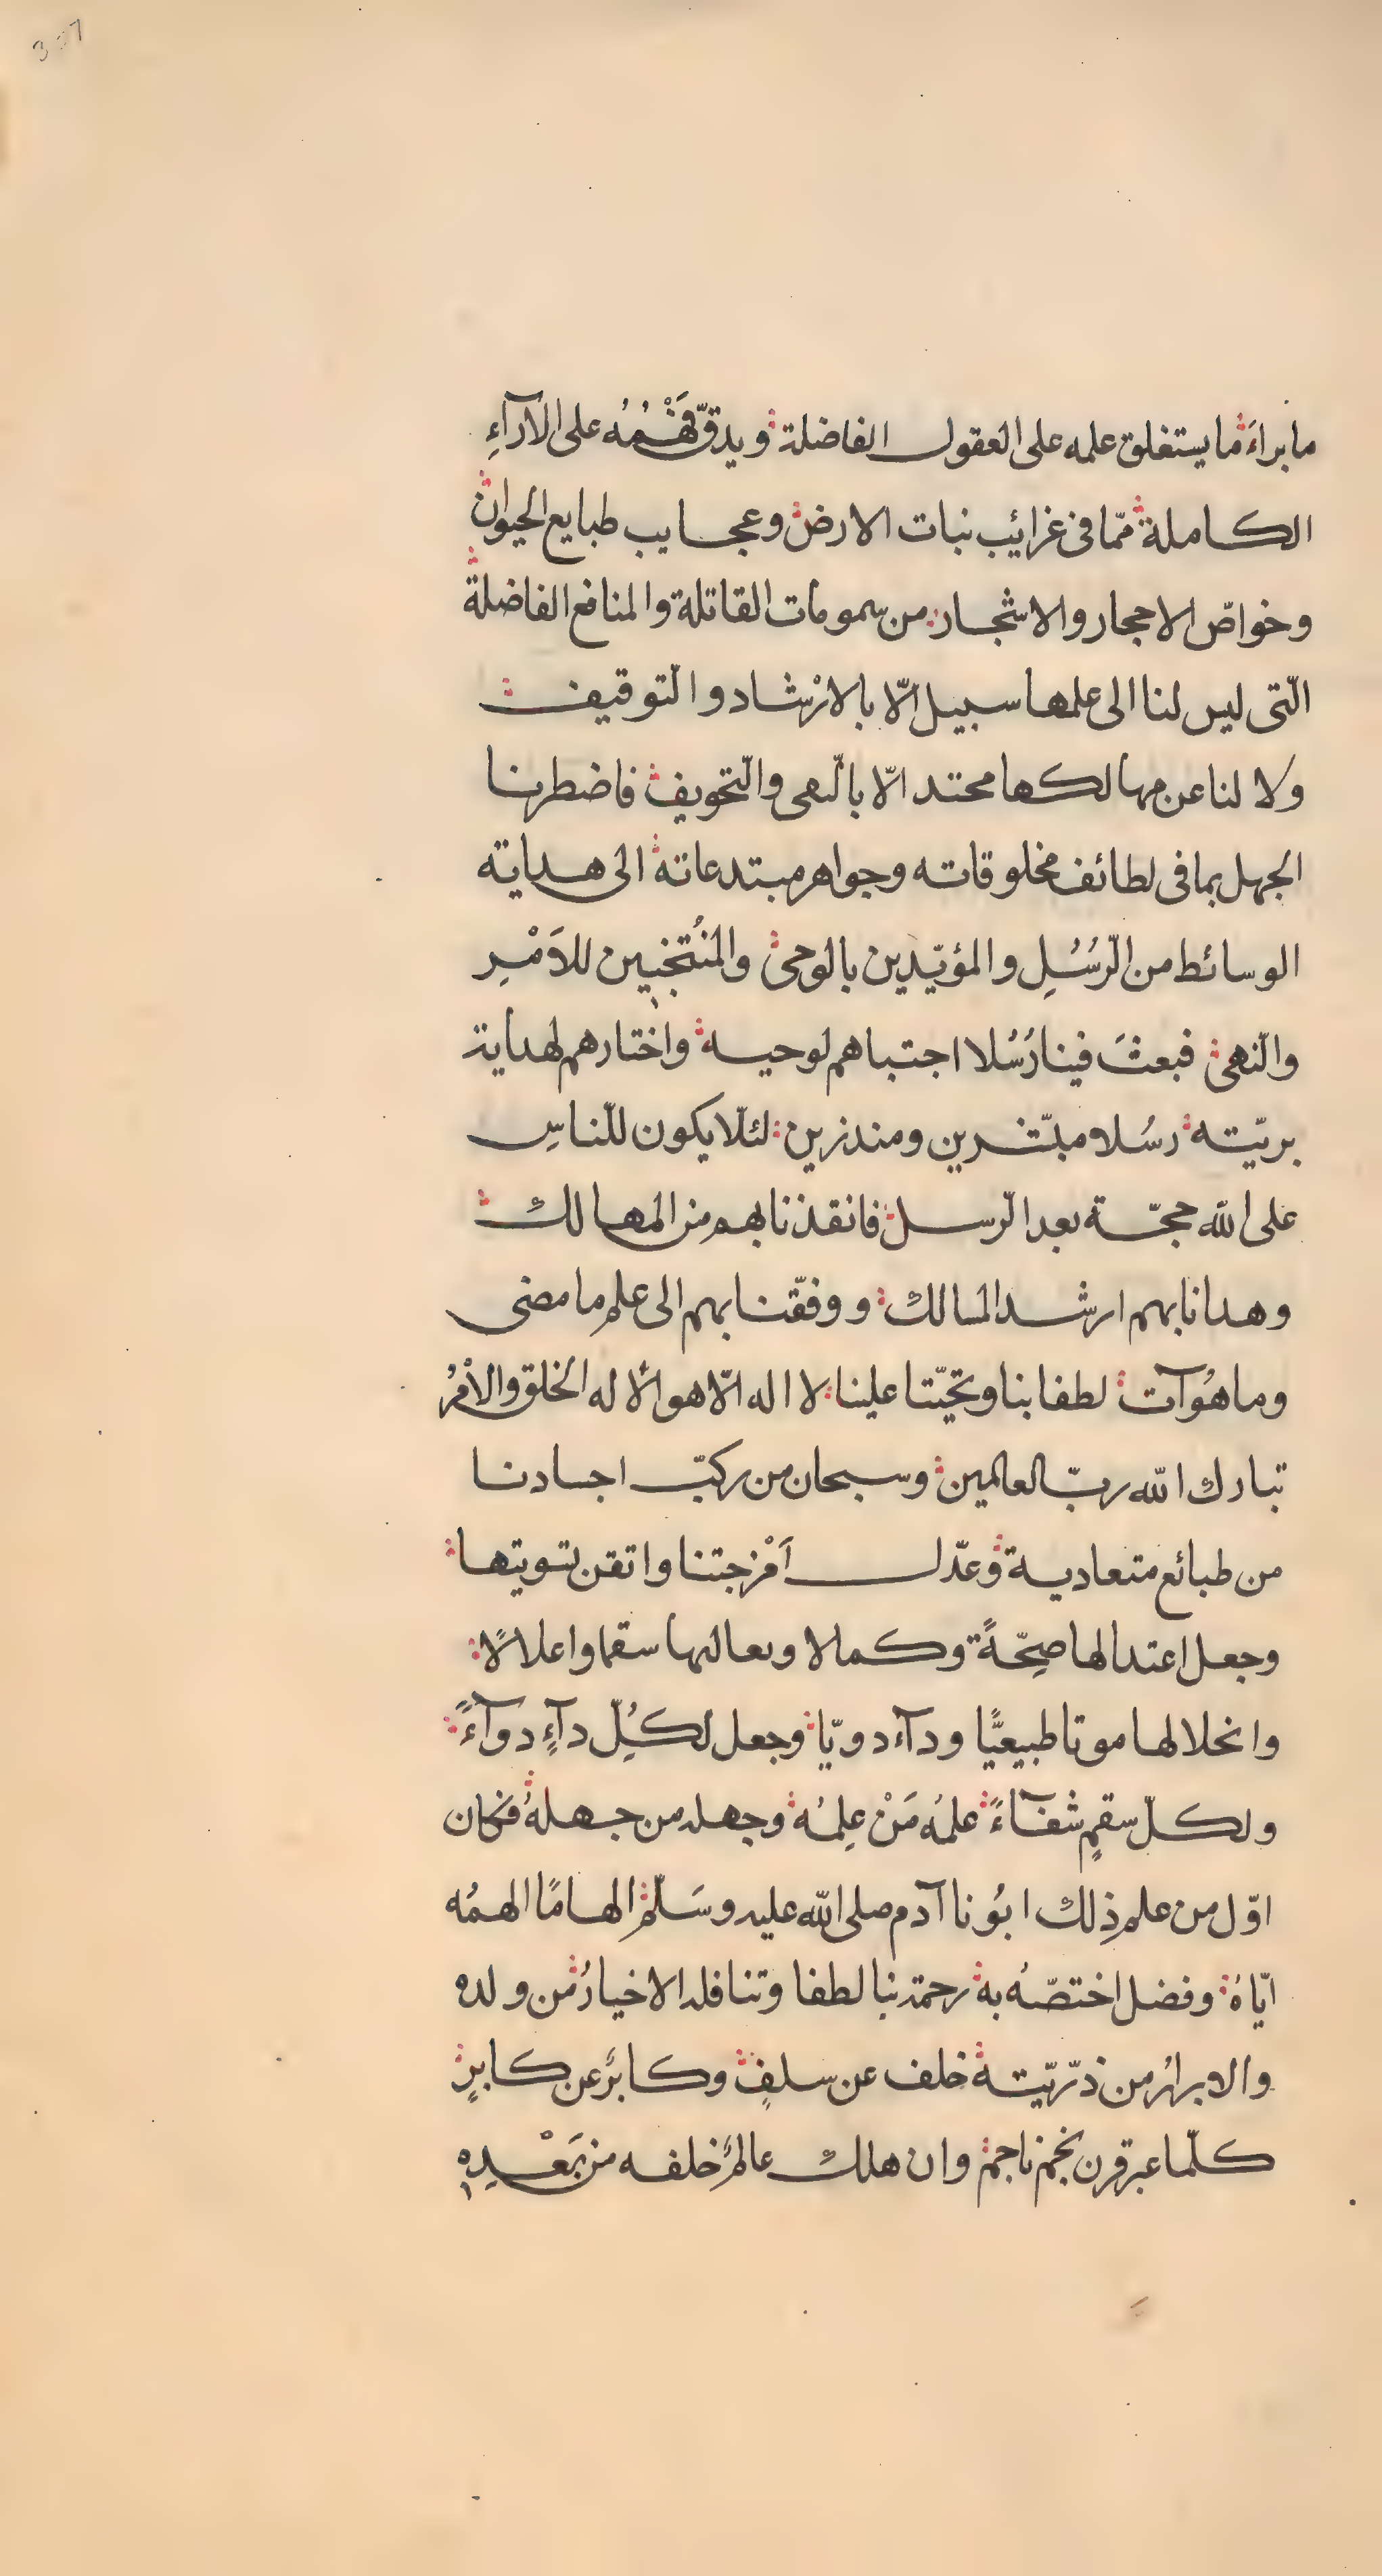 ما براءَ ما يستغلق علمه على العقول الفاضلة ويدقّ فَهْمُهُ على الآراءِ
الكاملة ممّا فى غرائب نبات الارض وعجايب طبايع الحيوان
وخواصّ الاحجار والاشجار من سمومات القاتلة والمنافع الفاضلة
الّتى ليس لنا الى علمها سبيل الّا بالارْشاد والتوقيف
ولا لنا عن مهالكها محتد الّا بالنّهى والتّخويف فاضطرنا
الجهل بما فى لطائف مخلوقاته وجواهر مبتدعاته الى هدايته
الوسائط من الرّسُلِ والمؤيّدين بالوحى والمنُتجَبين للاَمْرِ
والنّهى فبعثَ فينا رُسُلا اجتباهم لوحيه واختارهم لهداية
بريّته رسُلا مبشّرين ومنذرين لئلّا يكون للنّاسِ
على الله حجّة بعد الرّسل فانقذنا بهم من المهالك
وهدانا بهم ارشد المسالك ووفّقنا بهم الى علم ما مضى
وما هُوَ آت لطفا بنا وتحيّتا علينا لا اله الّا هو ألا له الخلق والأمْرُ
تبارك الله ربّ العالمين وسبحان من ركبّ اجسادنا
من طبائع متعادية وعدّل اَمْزجتنا واتقن تسويتها
وجعل اعتدالها صِحّةً وكمالا وبعالها سقما واعلالًا
وانحلالها موتا طبيعيًّا ودآء دويّا وجعل لكُلِّ دآءٍ دوآءً
ولكلّ سقمٍ شفآءً علمُه مَنْ عِلمُه وجهله من جهلهُ فكان
اوّل من علم ذلك ابُونا آدم صلى الله عليه وسَلّم الهامًا الهمُه
ايّاهُ وفضل اختصّهُ به رحمة بنا لطفا وتناقله الاخيارُ من ولده
والابرارُ من ذرّيّته خلف عن سلفٍ وكابرٌ عن كابرٍ
كلّما عبر قرن نجم ناجم وان هلك عالمٌ خلفه من بَعْدِهِ